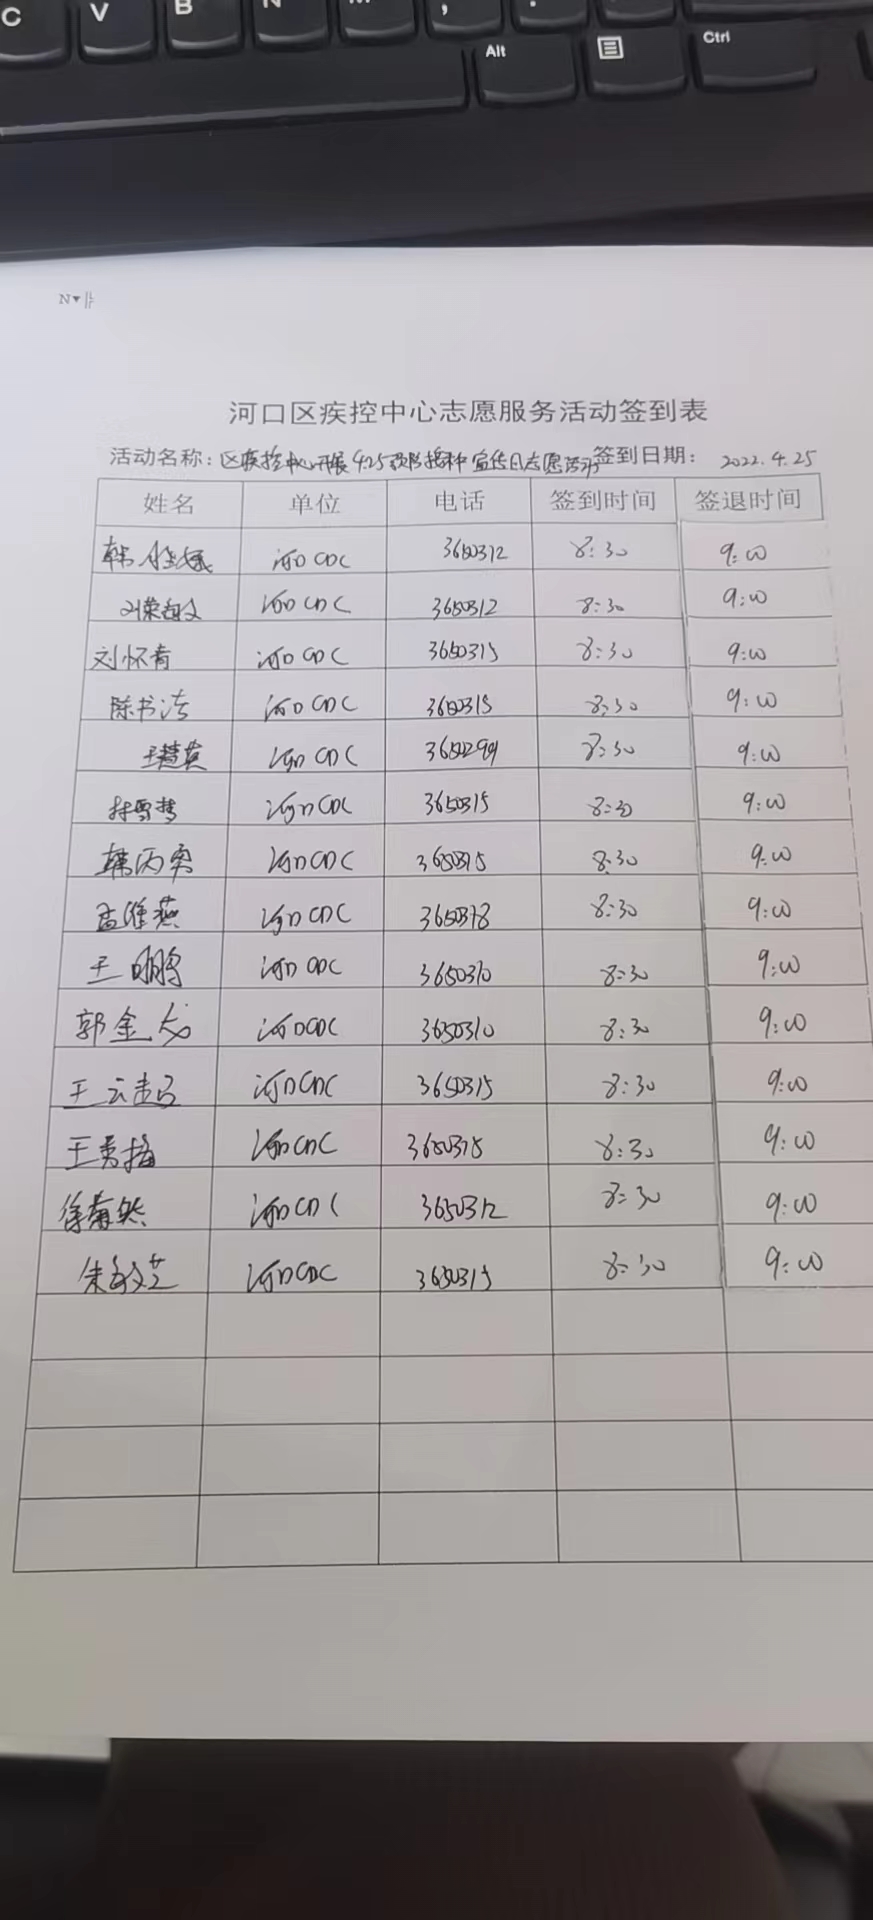 C V B N M , .
Alt Ctrl
N
河口区疾控中心志愿服务活动签到表
活动名称：区疾控中心开展4.25预防接种宣传日志愿活动 签到日期： 2022.4.25
姓名 单位 电话 签到时间 签退时间
韩 河口CDC 3650312 8:30 9:00
刘荣敏 河口CDC 3650312 8:30 9:00
刘怀青 河口CDC 3650315 8:30 9:00
陈书洁 河口CDC 3650315 8:30 9:00
王慧英 河口CDC 3650299 8:30 9:00
雪梦 河口CDC 3650315 8:30 9:00
韩丙 河口CDC 8:30 9:00
孟维燕 河口CDC 8:30 9:00
王明鹏 河口CDC 3650310 8:30 9:00
郭金龙 河口CDC 3650310 8:30 9:00
王云 河口CDC 3650315 8:30 9:00
王秀梅 河口CDC 3650315 8:30 9:00
徐菊然 河口CDC 3650312 8:30 9:00
朱敏芝 河口CDC 3650315 8:30 9:00